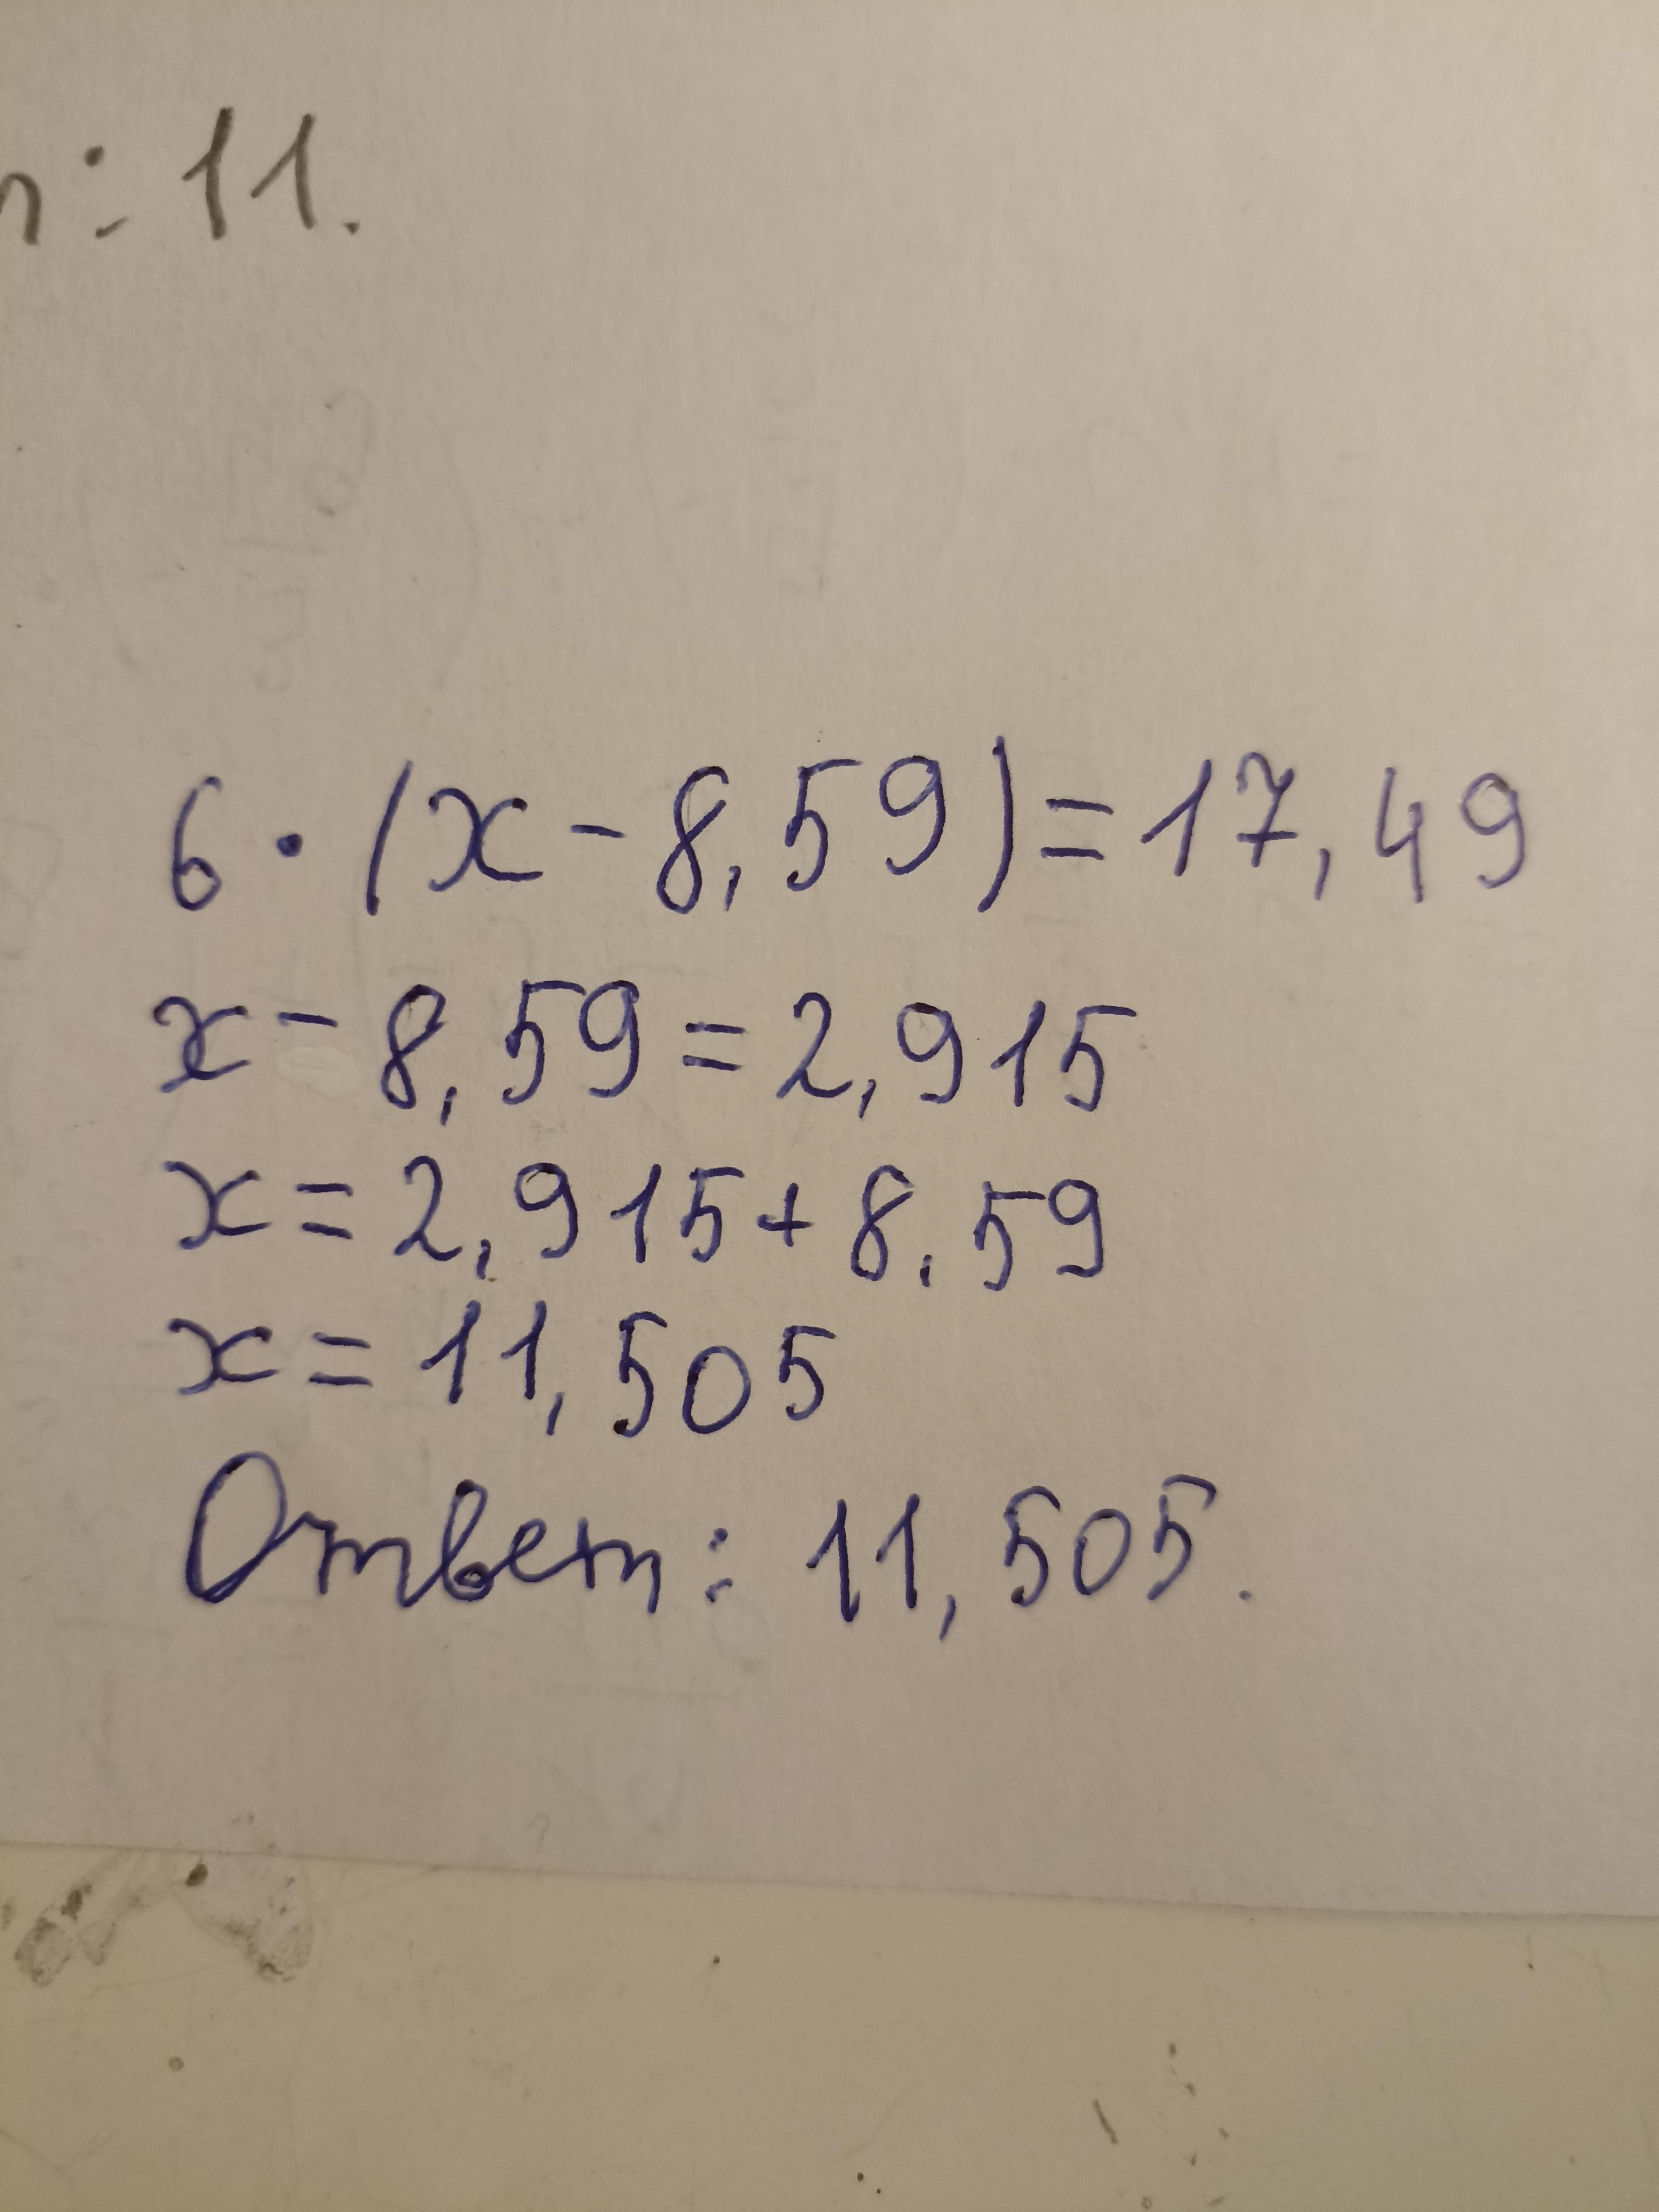 n: 11.
6 · (x - 8,59) = 17,49
x - 8,59 = 2,915
x = 2,915 + 8,59
x = 11,505
Ответ: 11,505.